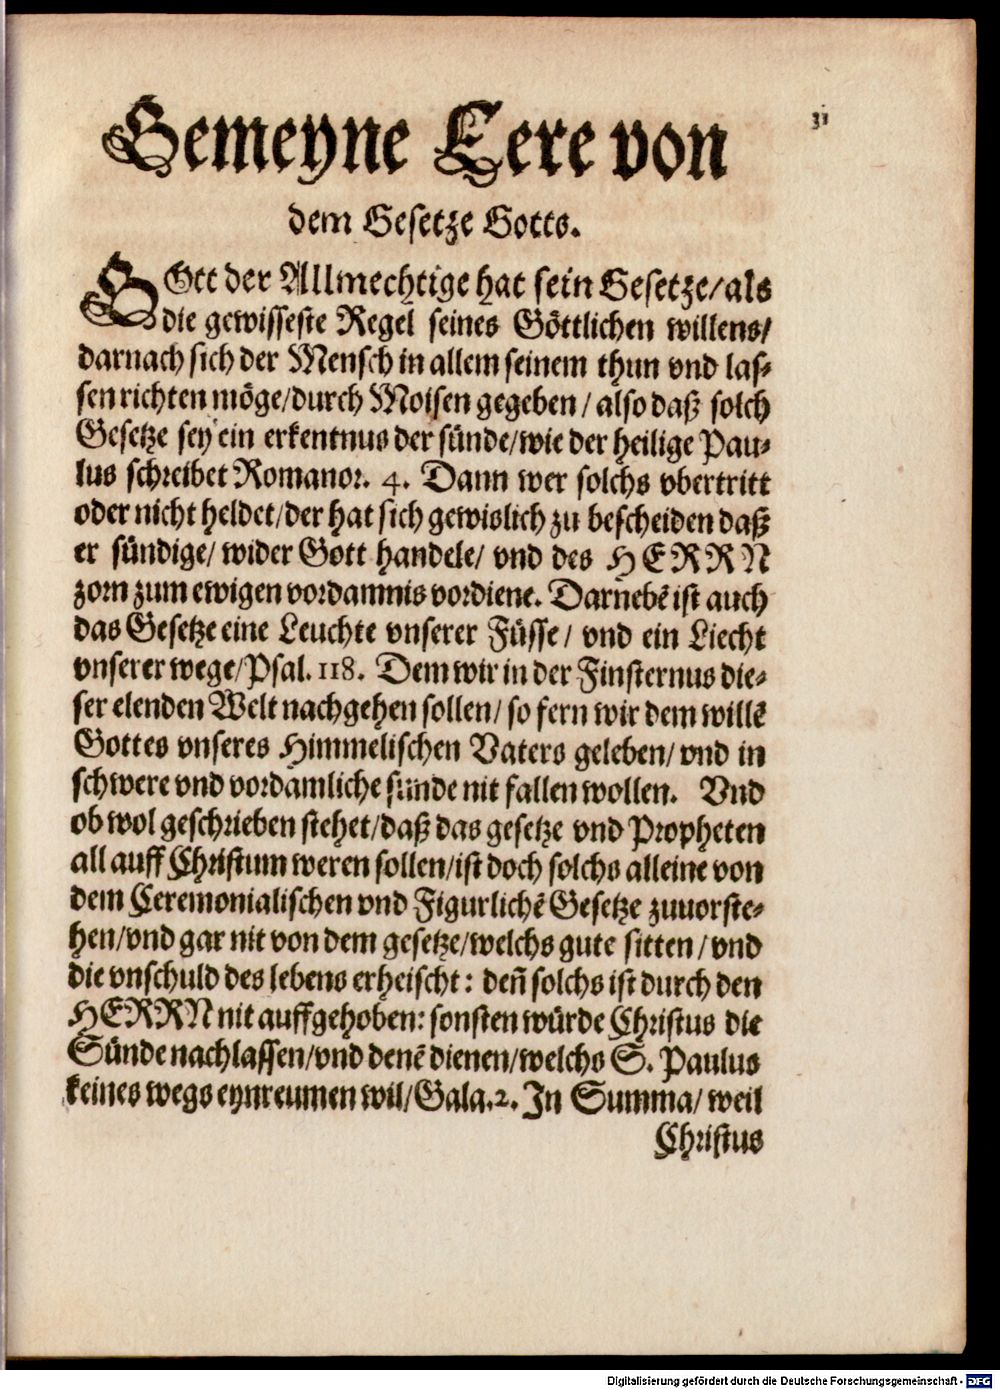 31
Gemeyne Lere von
dem Gesetze Gotts.
GOtt der Allmechtige hat sein Gesetze/als
die gewisseste Regel seines Göttlichen willens/
darnach sich der Mensch in allem seinem thun vnd las-
sen richten möge/durch Moisen gegeben/ also daß solch
Gesetze sey ein erkentnus der sünde/wie der heilige Pau-
lus schreibet Romanor. 4. Dann wer solchs vbertritt
oder nicht heldet/der hat sich gewislich zu bescheiden daß
er sündige/ wider Gott handele/ vnd des HERRN
zorn zum ewigen vordamnis vordiene. Darnebē ist auch
das Gesetze eine Leuchte vnserer Füsse/ vnd ein Liecht
vnserer wege/Psal. 118. Dem wir in der Finsternus die-
ser elenden Welt nachgehen sollen/ so fern wir dem willē
Gottes vnseres Himmelischen Vaters geleben/ vnd in
schwere vnd vordamliche sünde nit fallen wollen. Vnd
ob wol geschrieben stehet/daß das gesetze vnd Propheten
all auff Christum weren sollen/ist doch solchs alleine von
dem Ceremonialischen vnd Figurlichē Gesetze zuuorste-
hen/vnd gar nit von dem gesetze/welchs gute sitten/ vnd
die vnschuld des lebens erheischt: den̄ solchs ist durch den
HERRN nit auffgehoben: sonsten würde Christus die
Sünde nachlassen/vnd denē dienen/welchs S. Paulus
keines wegs eynreumen wil/Gala.2. In Summa/ weil
Christus
Digitalisierung gefördert durch die Deutsche Forschungsgemeinschaft - DFG